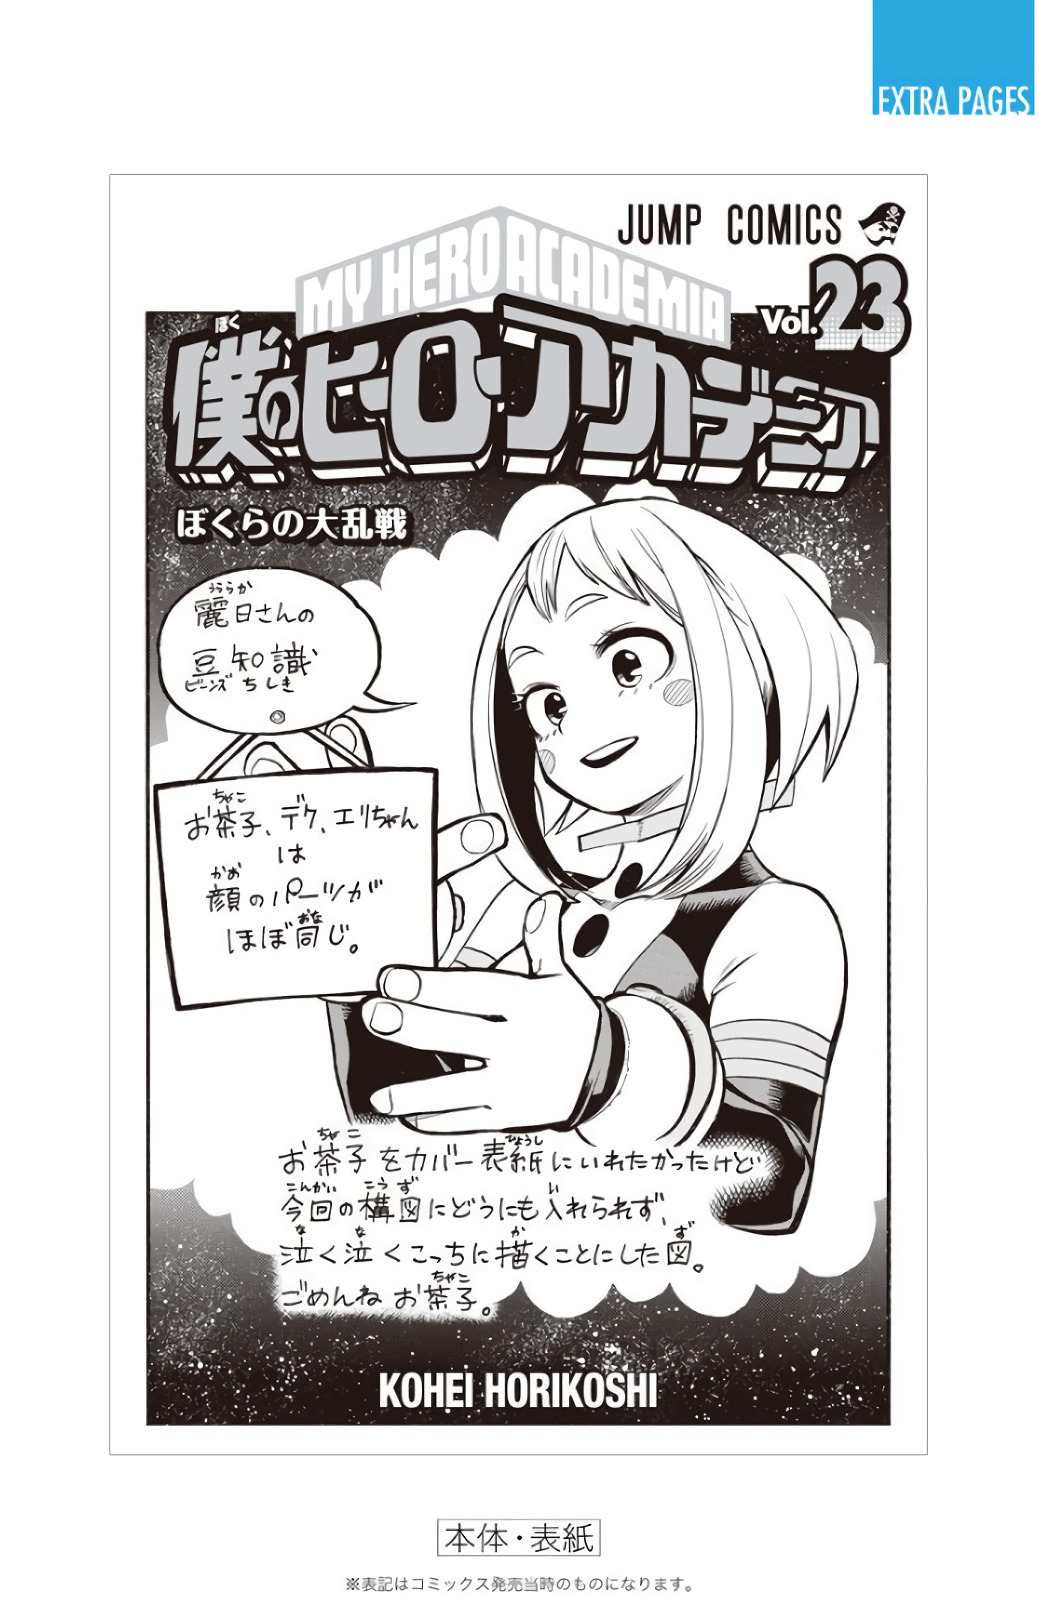 EXTRA PAGES
JUMP COMICS
MY HERO ACADEMIA
Vol.23
ぼく
僕のヒーローアカデミア
ぼくらの大乱戦
うららか
麗日さんの
豆知識
ビーンズ ちしき
ちゃこ
お茶子、デク、エリちゃん
は
かお
顔のパーツが
おな
ほぼ同じ。
ちゃこ ひょうし
お茶子をカバー表紙にいれたかったけど
こんかい こうず い
今回の構図にどうにも入れられず、
な な か ず
泣く泣くこっちに描くことにした図。
ちゃこ
ごめんねお茶子。
KOHEI HORIKOSHI
本体・表紙
※表記はコミックス発売当時のものになります。